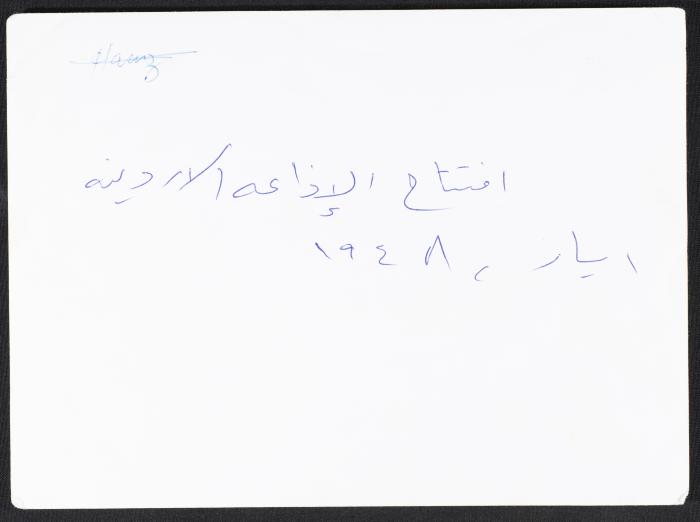 Hamz
افتتاح الإذاعه الاردنيه
ايار ، ١٩٤٨